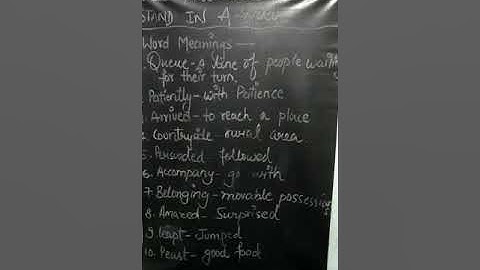 STAND IN A
Word Meanings —
Queue - a line of people
for their turn.
Patiently - with Patience
Arrived - to reach a place
4. Countryside rural area
5. Persuaded followed
6. Accompany - go with
7. Belonging - movable possessions
8. Amazed - Surprised
9. leapt - Jumped
10. Feast - good food